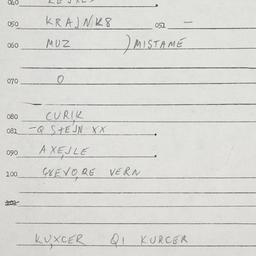 040
050 KRAJNK8 052 -
060 MUZ ) MISTAMÉ
070 O
080 CURIK
082 -Q STEJN XX
090 AXEJLE
100 VERN
KUXCER QI KURCER